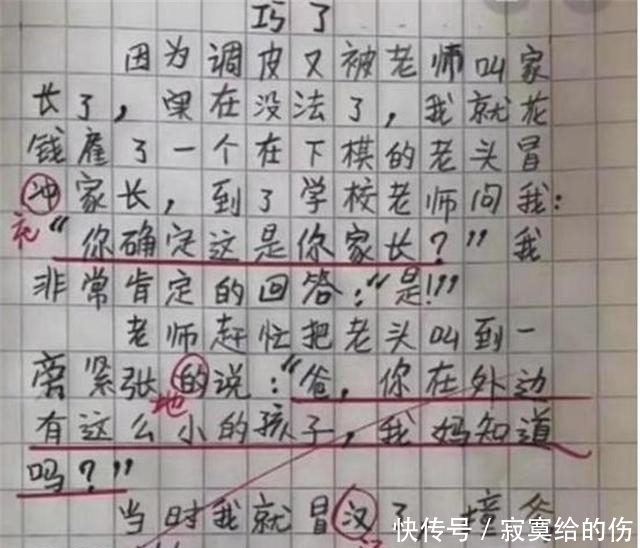 巧了
因为调皮又被老师叫家
长了，实在没法了，我就花
钱雇了一个在下棋的老头冒
冲家长，到了学校老师问我：
充
“你确定这是你家长？”我
非常肯定的回答：“是！”
老师赶忙把老头叫到一
旁紧张的说：“爸，你在外边
地
有这么小的孩子，我妈知道
吗？”
当时我就冒汉了
快传号 / 寂寞给的伤